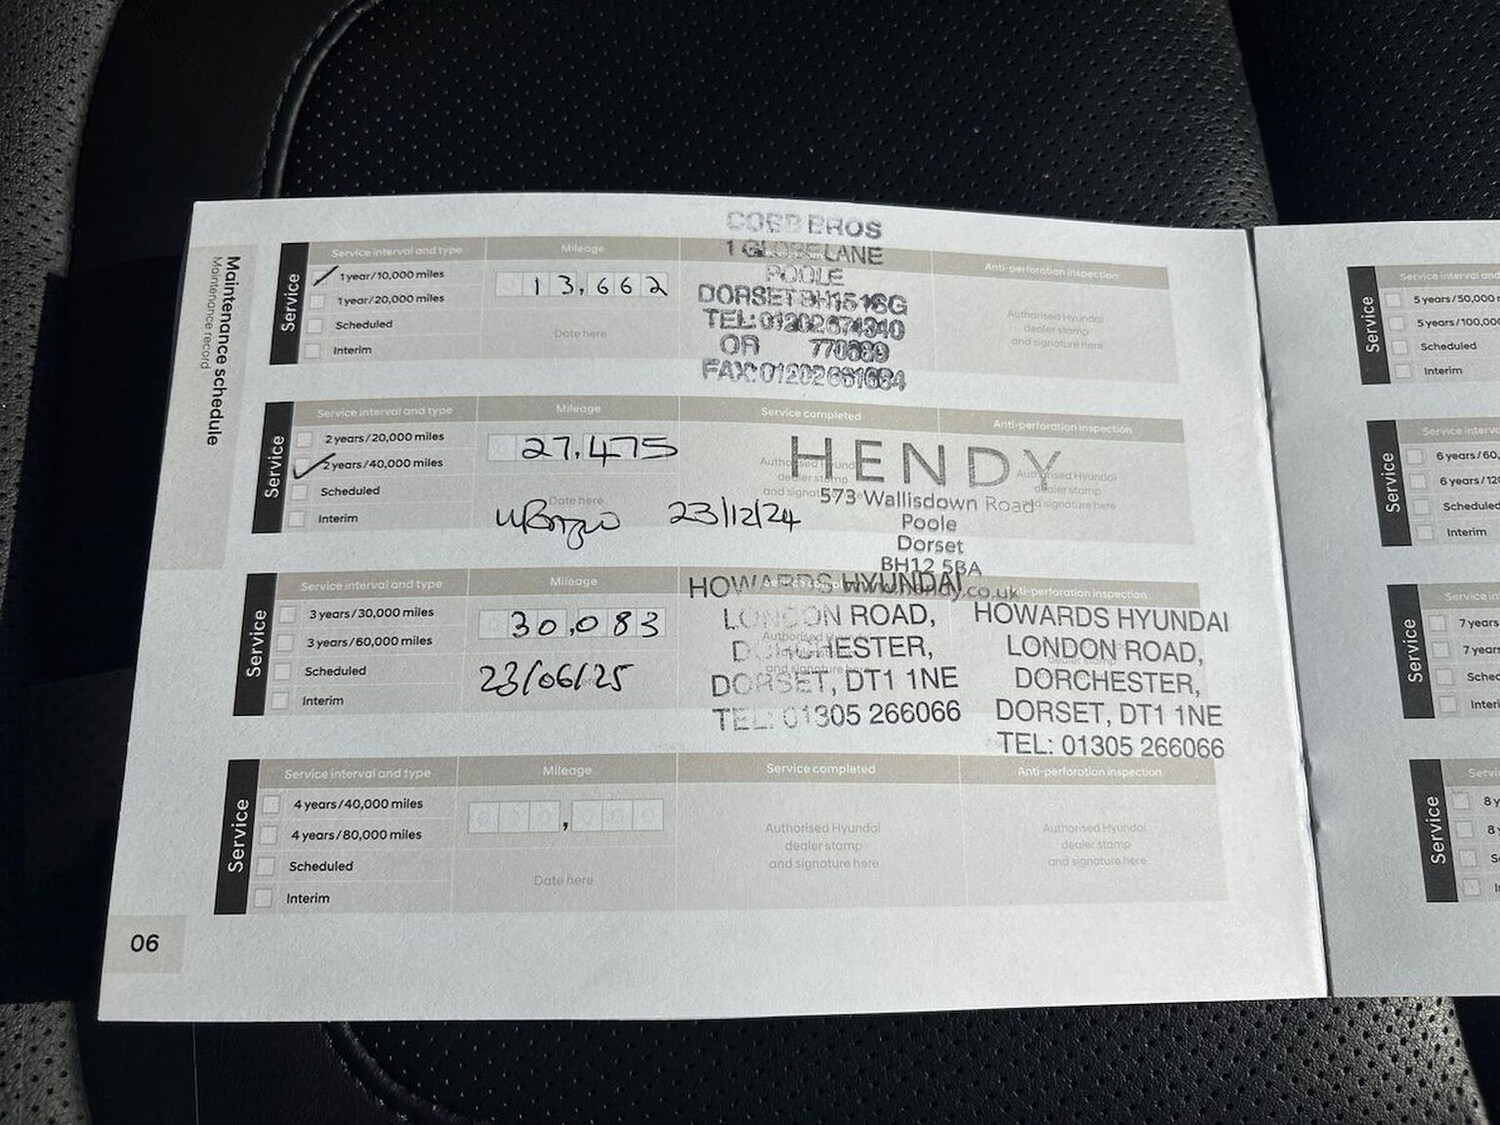 Maintenance schedule
Maintenance record
Service
Service interval and type
Mileage
1 year/10,000 miles
1 year/20,000 miles
Scheduled
Interim
13,662
Date here
COBB BROS
1 GLOBE LANE
POOLE
DORSET BH15 1SG
TEL: 01202 674340
OR
FAX: 01202
Anti-perforation inspection
Authorised Hyundai
dealer stamp
and signature here
Service
Service interval and type
Mileage
Service completed
Anti-perforation inspection
2 years/20,000 miles
2 years/40,000 miles
Scheduled
Interim
27,475
Date here
23/12/24
HENDY
573 Wallisdown Road
Poole
Dorset
BH12 5BA
www.hendy.co.uk
Authorised Hyundai
dealer stamp
and signature here
Authorised Hyundai
dealer stamp
and signature here
Service
Service interval and type
Mileage
Anti-perforation inspection
3 years/30,000 miles
3 years/60,000 miles
Scheduled
Interim
30,083
23/06/25
HOWARDS HYUNDAI
LONDON ROAD,
DORCHESTER,
DORSET, DT1 1NE
TEL: 01305 266066
HOWARDS HYUNDAI
LONDON ROAD,
DORCHESTER,
DORSET, DT1 1NE
TEL: 01305 266066
Service
Service interval and type
Mileage
Service completed
Anti-perforation inspection
4 years/40,000 miles
4 years/80,000 miles
Scheduled
Interim
000,000
Date here
Authorised Hyundai
dealer stamp
and signature here
Authorised Hyundai
dealer stamp
and signature here
06
Service
Service interval and
5 years/50,000
5 years/100,000
Scheduled
Interim
Service
Service
6 years/60,
6 years/120
Scheduled
Interim
Service
Service
7 years
7 years
Interim
Service
8
8